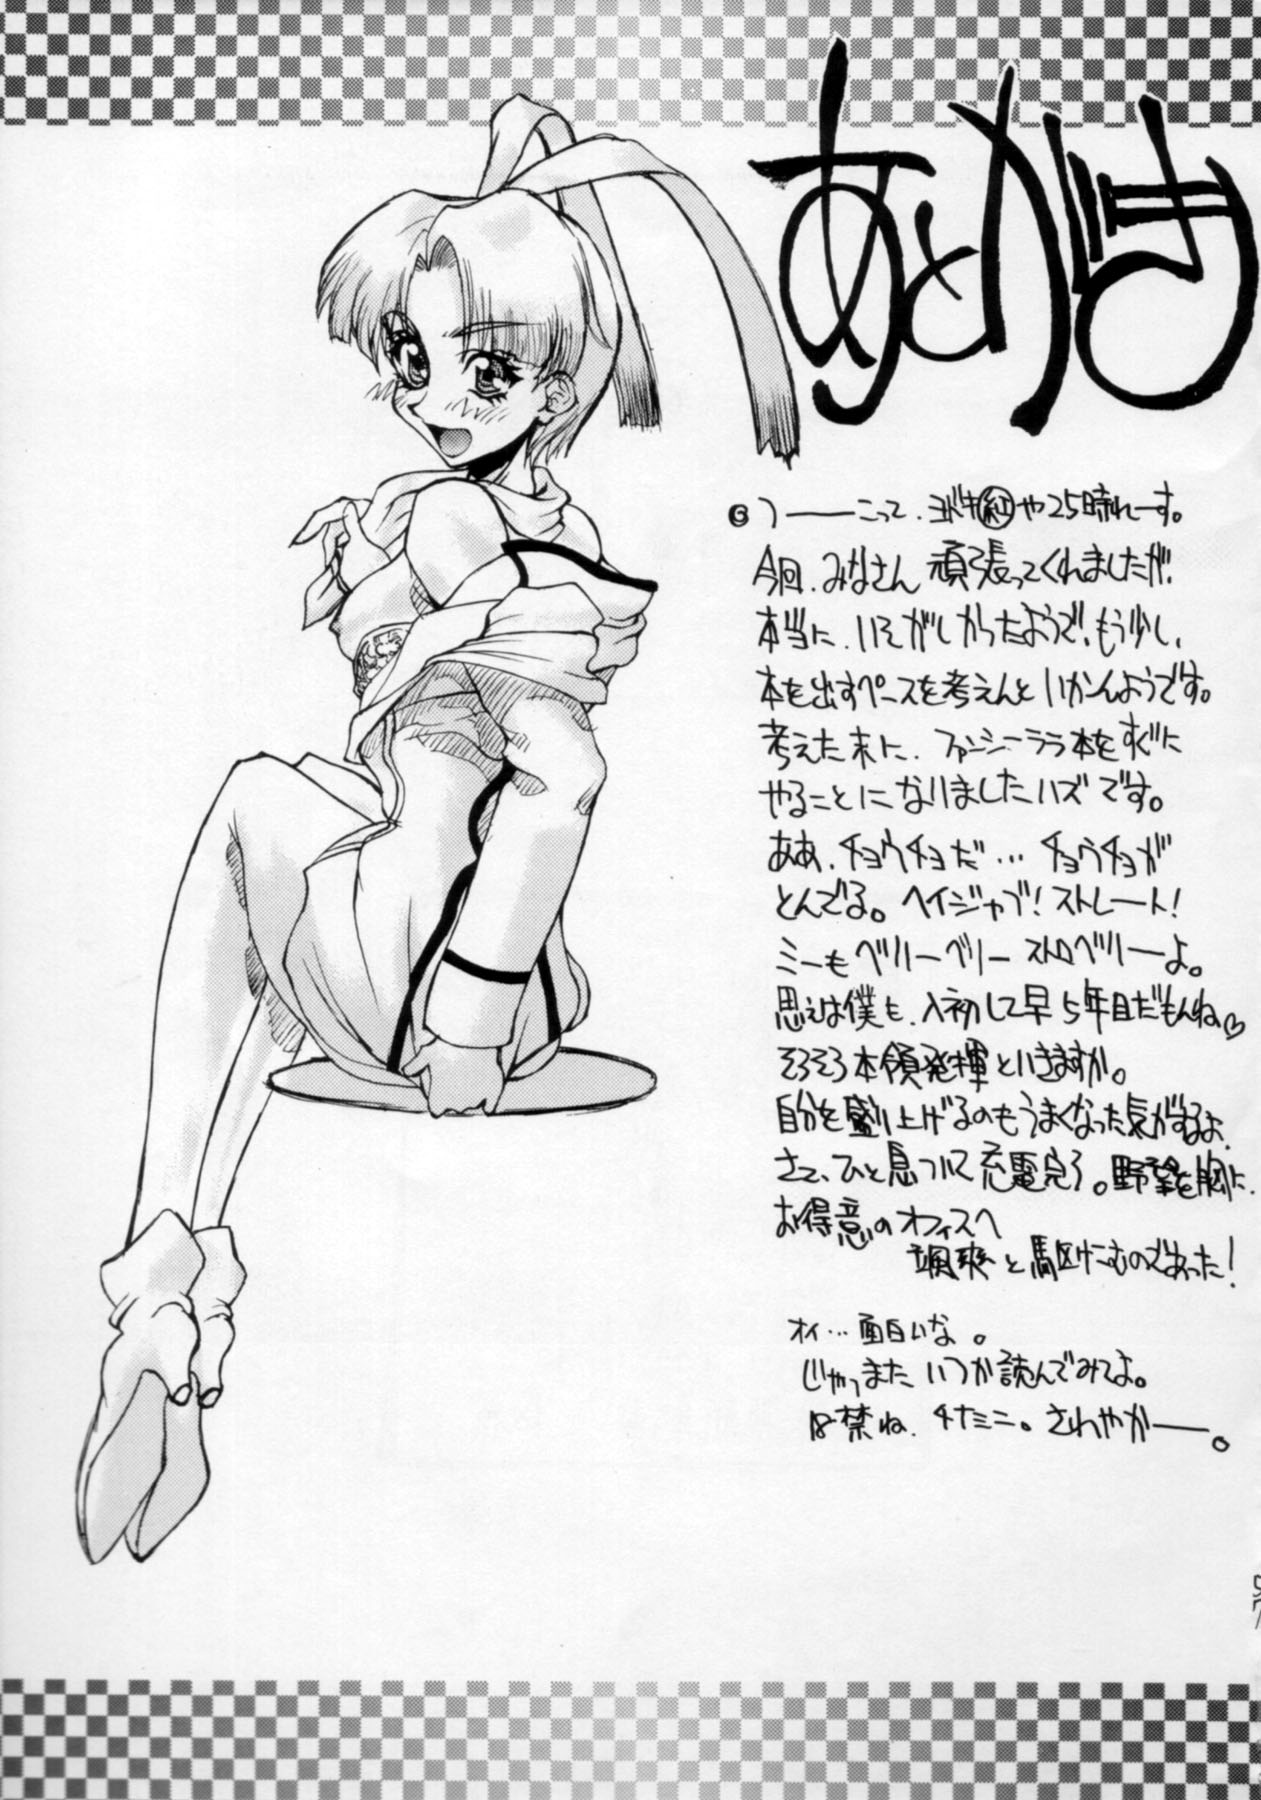 あとがき
つーーこって、ヨドキ紅や25時れーす。
今回、みなさん 頑張ってくれましたが、
本当に、いそがしかったようで、もう少し、
本を出すペースを考えんといかんようです。
考えた末に、ファンシーララ本をすぐに
やることになりましたハズです。
ああ、チョウチョだ… チョウチョが
とんでる。ヘイジャブ！ストレート！
ミーもベリーベリー ストロベリーよ。
思えば僕も、入初して早5年目だもんね♡
そろそろ本領発揮といきますか。
自分を盛り上げるのもうまくなった気がするよ。
さて、ひと息ついて充電完了。野望を胸に、
お得意のオフィスへ
颯爽と駆けこむのであった！
オイ…面白いな。
じゃっまた いつか読んでみてよ。
18禁ね、チナミニ。さわやかー。
97